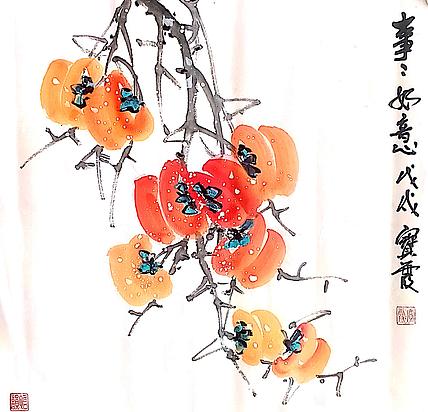 事〻如意戊戌寶霞